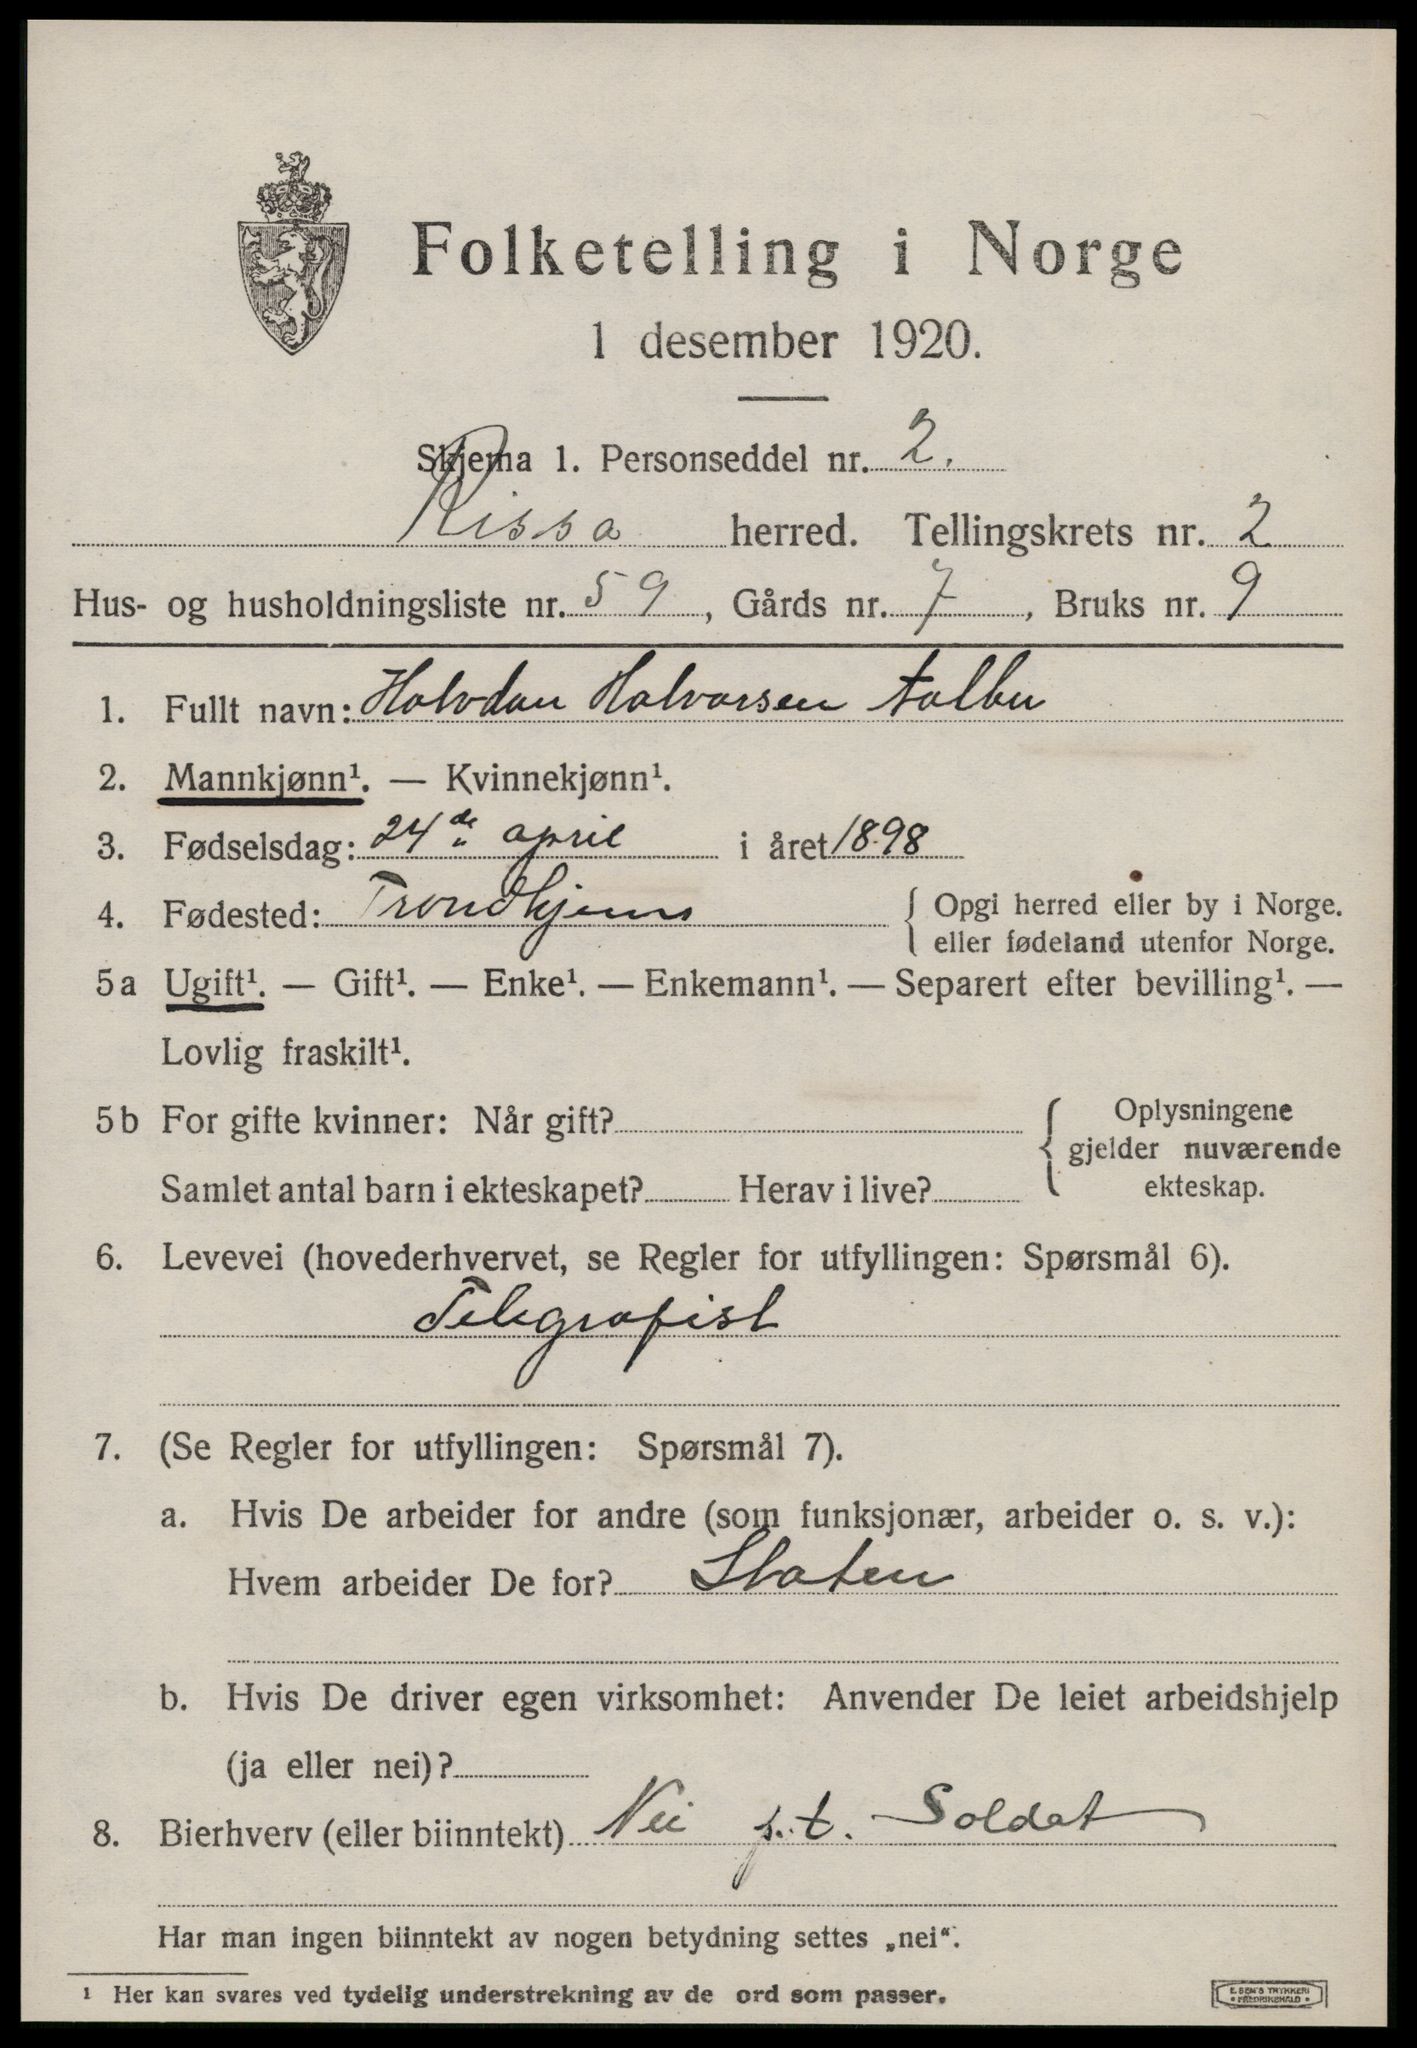 Folketelling i Norge
1 desember 1920.
Skjema 1. Personseddel nr. 2.
Rissa herred. Tellingskrets nr. 2
Hus- og husholdningsliste nr. 59, Gårds nr. 7, Bruks nr. 9
1. Fullt navn: Halvdan Halvorsen Aalbu
2. Mannkjønn¹. — Kvinnekjønn¹.
3. Fødselsdag: 24de april i året 1898
4. Fødested: Trondhjems { Opgi herred eller by i Norge.
eller fødeland utenfor Norge.
5a Ugift¹. — Gift¹. — Enke¹. — Enkemann¹. — Separert efter bevilling¹. —
Lovlig fraskilt¹.
5b For gifte kvinner: Når gift? { Oplysningene
gjelder nuværende
Samlet antal barn i ekteskapet? Herav i live? ekteskap.
6. Levevei (hovederhvervet, se Regler for utfyllingen: Spørsmål 6).
Telegrafist
7. (Se Regler for utfyllingen: Spørsmål 7).
a. Hvis De arbeider for andre (som funksjonær, arbeider o. s. v.):
Hvem arbeider De for? Staten
b. Hvis De driver egen virksomhet: Anvender De leiet arbeidshjelp
(ja eller nei)?
8. Bierhverv (eller biinntekt) Nei p.t. Soldat
Har man ingen biinntekt av nogen betydning settes „nei“.
¹ Her kan svares ved tydelig understrekning av de ord som passer.
E. SEM'S TRYKKERI
• FREDRIKSHALD •